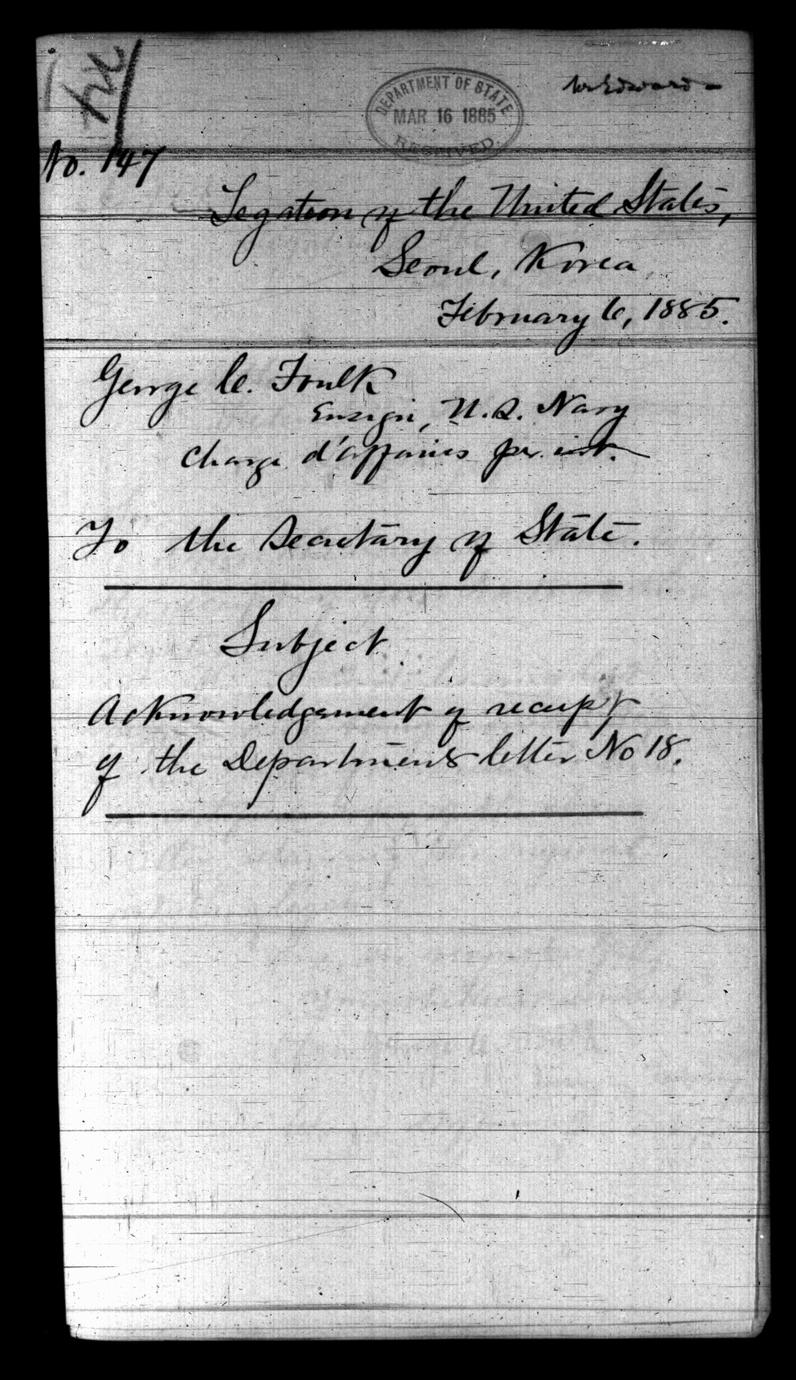 DEPARTMENT OF STATE
MAR 16 1885
RECEIVED.
Mr Edwards
No. 147
Legation of the United States,
Seoul, Korea
February 6, 1885.
George C. Foulk
Ensign, U.S. Navy
Charge d'affaires per. int.
To the Secretary of State.
Subject
Acknowledgement of receipt
of the Department's letter No 18.